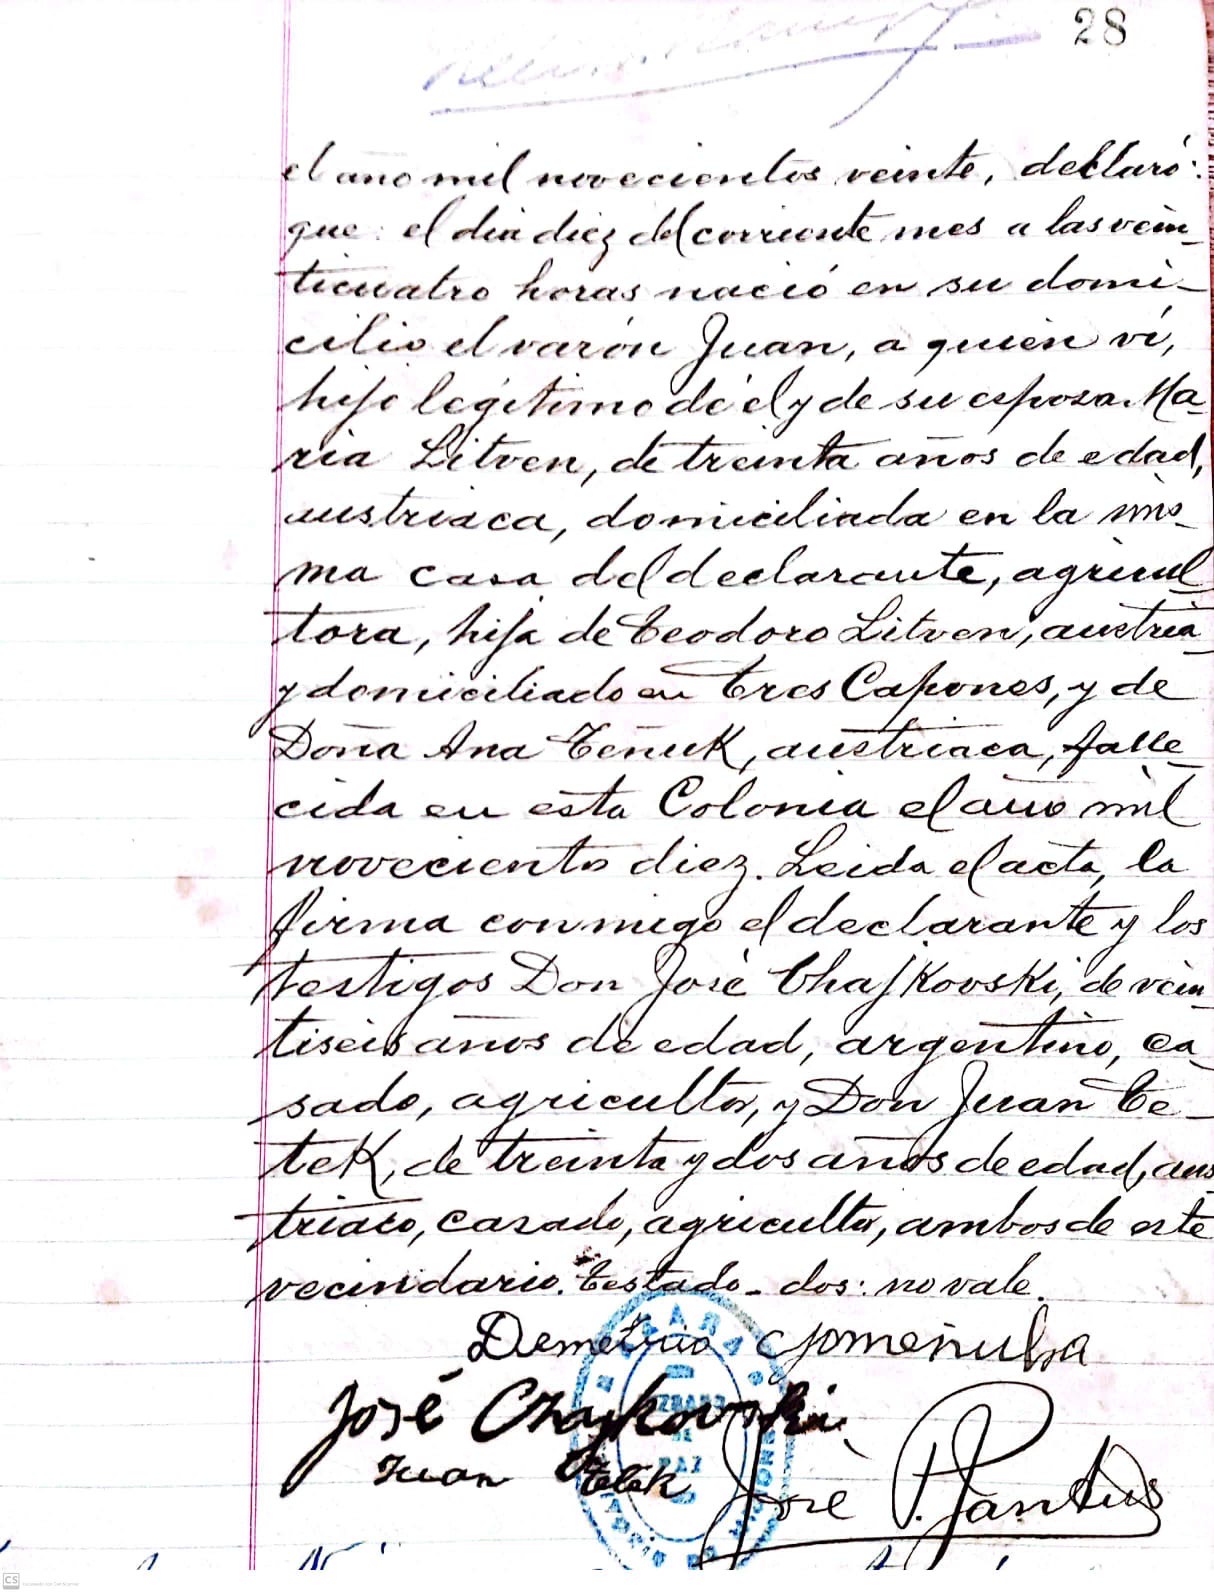 28
el año mil novecientos veinte, declaró:
que: el dia diez del corriente mes a las vein-
ticuatro horas nació en su domi-
cilio el varón Juan, a quien ví,
hijo legítimo de él y de su esposa Ma-
ria Litven, de treinta años de edad,
austriaca, domiciliada en la mis-
ma casa del declarante, agricul-
tora, hija de Teodoro Litven, austria-
y domiciliado en Tres Capones, y de
Doña Ana Teñuk, austriaca, falle-
cida en esta Colonia el año mil
novecientos diez. Leida el acta, la
firma conmigo el declarante y los
testigos Don José Chajkovski, de vein-
tiseis años de edad, argentino, ca-
sado, agricultor, y Don Juan Te-
tek, de treinta y dos años de edad, aus-
triaco, casado, agricultor, ambos de este
vecindario. Testado - dos: no vale.
Demetrio
José Czajkovski
Juan Tetek
José P.
JUZGADO
DE
PAZ